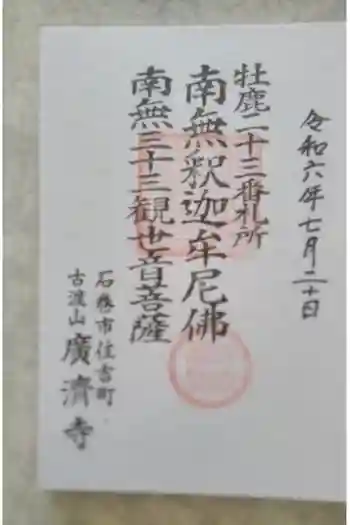 令和六年七月二十日
牡鹿二十三番札所
南無釈迦牟尼佛
南無三十三観世音菩薩
石巻市住吉町
古渡山
廣濟寺